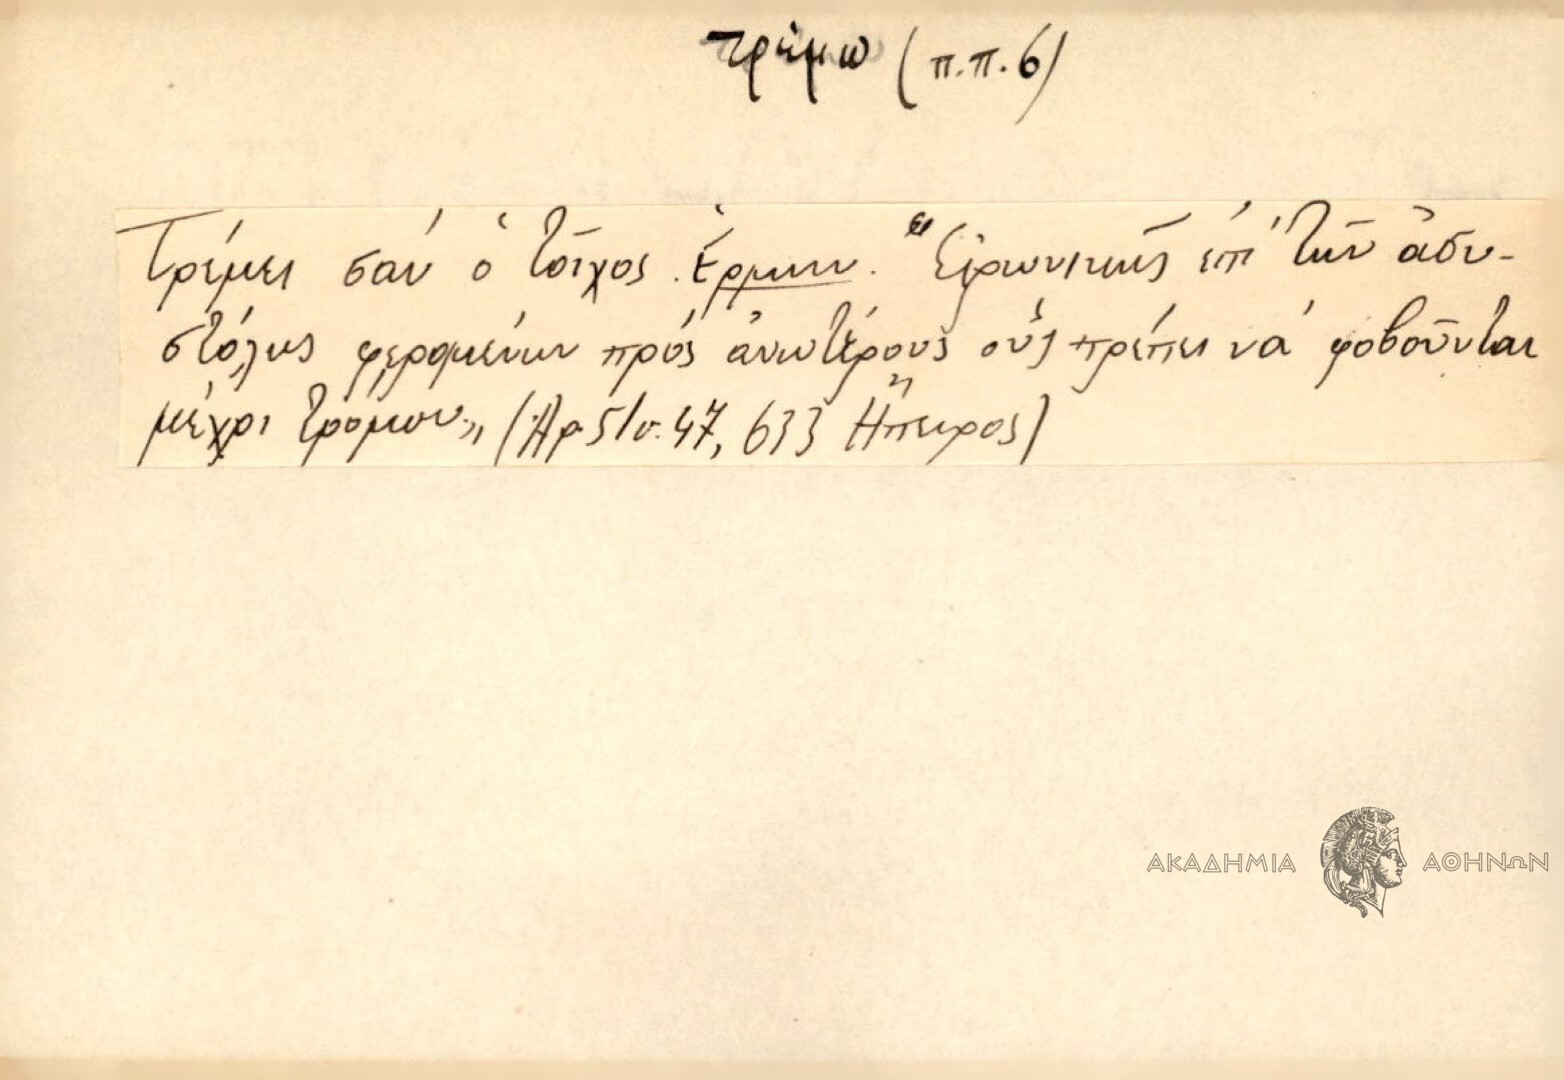 τρέμω (π.π.6)
Τρέμει σάν ὁ τοῖχος. Ἑρμην. "Εἰρωνικῶς ἐπί τῶν ἀδυ-
στόλως φερομένων πρός ἀνωτέρους οὕς πρέπει νά φοβοῦνται
μέχρι τρόμου„ (Ἀρ. 47, 633 Ἤπειρος)
ΑΚΑΔΗΜΙΑ ΑΘΗΝΩΝ